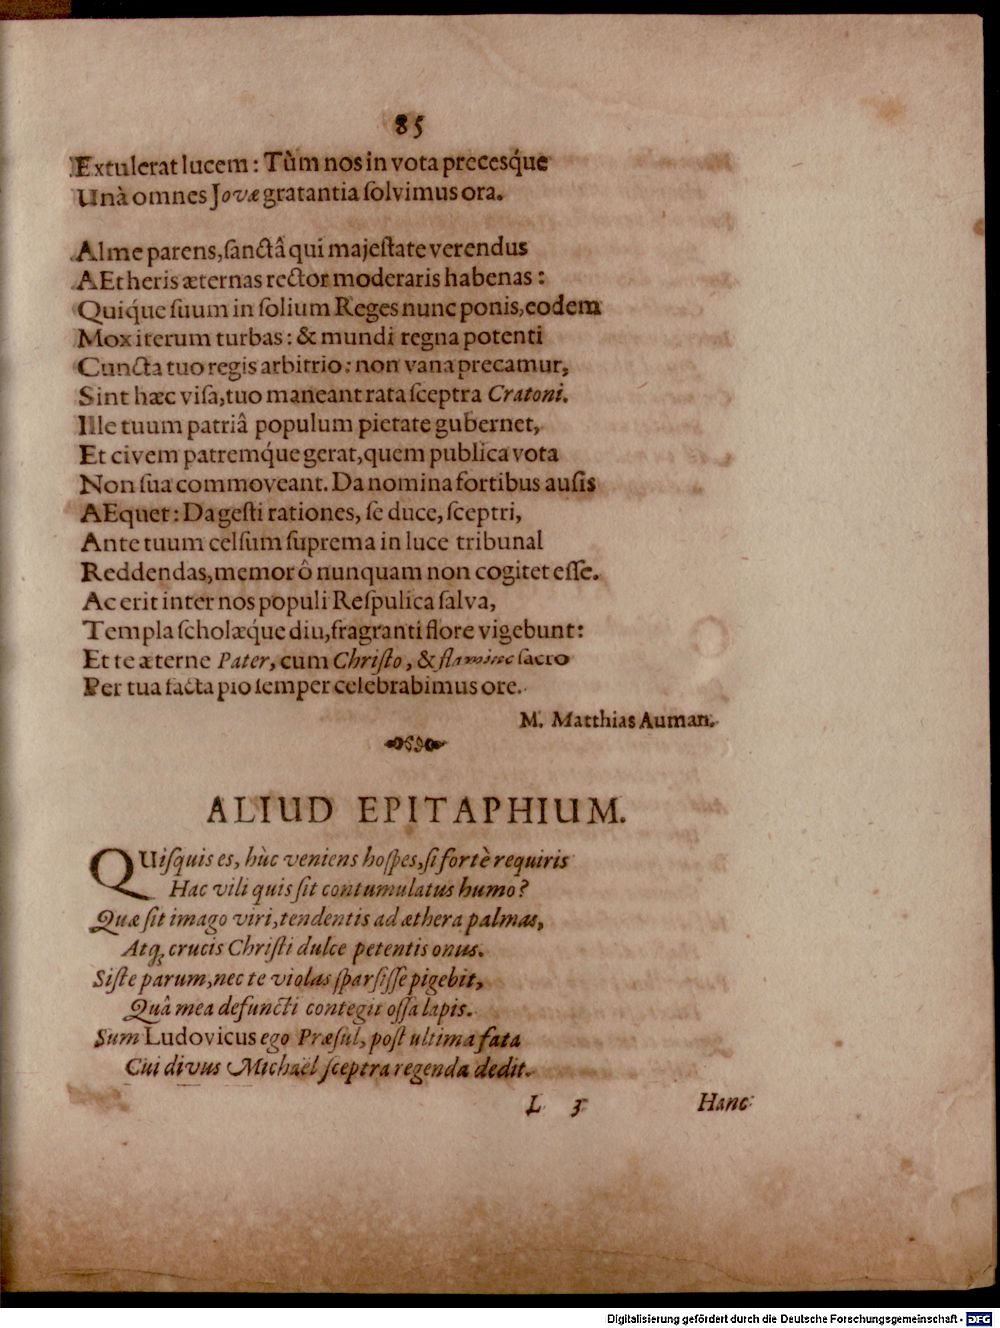 85
Extulerat lucem: Tùm nos in vota precesq́ue
Unà omnes Jovæ gratantia ſolvimus ora.
Alme parens, ſanctâ qui majeſtate verendus
AEtheris æternas rector moderaris habenas:
Quiq́ue ſuum in ſolium Reges nunc ponis, eodem
Mox iterum turbas: & mundi regna potenti
Cuncta tuo regis arbitrio: non vana precamur,
Sint hæc viſa, tuo maneant rata ſceptra Cratoni.
Ille tuum patriâ populum pietate gubernet,
Et civem patremq́ue gerat, quem publica vota
Non ſua commoveant. Da nomina fortibus auſis
AEquet: Da geſti rationes, ſe duce, ſceptri,
Ante tuum celſum ſuprema in luce tribunal
Reddendas, memor ô nunquam non cogitet eſſe.
Ac erit inter nos populi Reſpulica ſalva,
Templa ſcholæq́ue diu, fragranti flore vigebunt:
Et te æterne Pater, cum Chriſto, & flamine ſacro
Per tua facta pio ſemper celebrabimus ore.
M. Matthias Auman.
ALIUD EPITAPHIUM.
QUiſquis es, hùc veniens hoſpes, ſi fortè requiris
Hac vili quis ſit contumulatus humo?
Quæ ſit imago viri, tendentis ad æthera palmas,
Atq; crucis Chriſti dulce petentis onus.
Siſte parum, nec te violas ſparſiſſe pigebit,
Quâ mea defuncti contegit oſſa lapis.
Sum Ludovicus ego Præſul, poſt ultima fata
Cui divus Michaël ſceptra regenda dedit.
L 3 Hanc
Digitalisierung gefördert durch die Deutsche Forschungsgemeinschaft - DFG